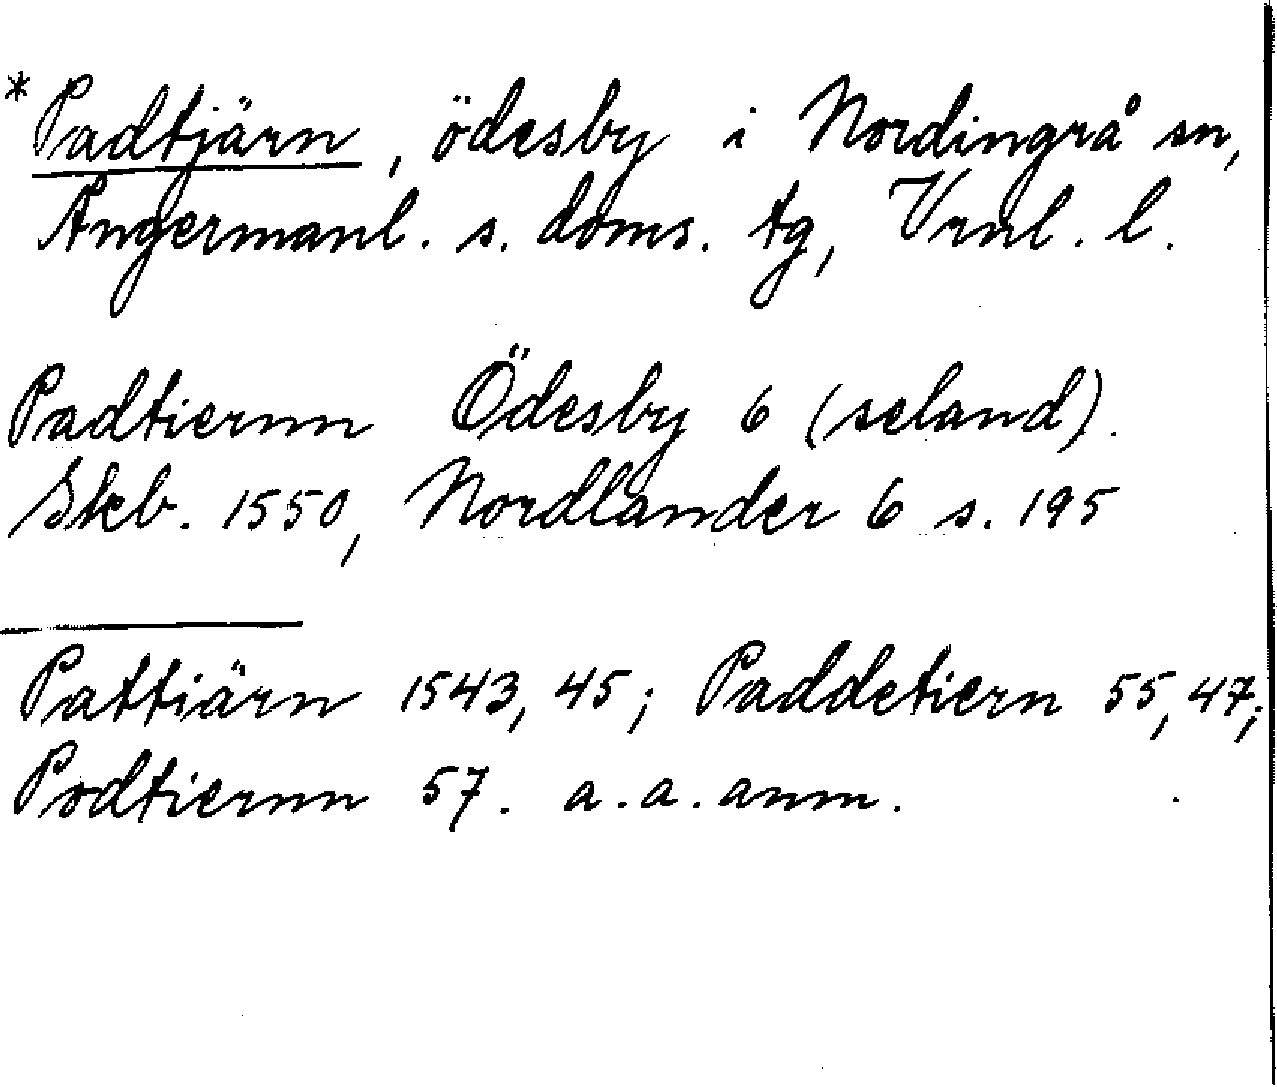 *Padtjärn, ödesby i Nordingrå sn,
Ångermanl. s. doms. tg, Vrnl. l.
Padtiernn Ödesby 6 (seland).
Skb. 1550, Nordlander 6 s. 195
Pattiärn 1543, 45; Paddetiern 55, 47;
Podtiernn 57. a.a. anm.